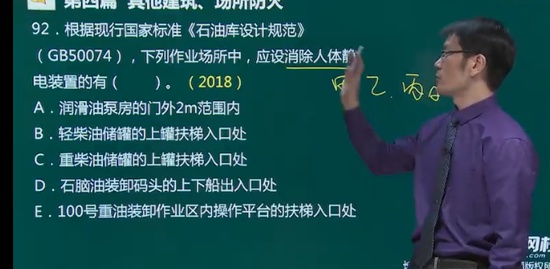 第四篇 其他建筑、场所防火
92．根据现行国家标准《石油库设计规范》
（GB50074），下列作业场所中，应设消除人体静
电装置的有（　　）。（2018）
甲 乙、丙A
A．润滑油泵房的门外2m范围内
B．轻柴油储罐的上罐扶梯入口处
C．重柴油储罐的上罐扶梯入口处
D．石脑油装卸码头的上下船出入口处
E．100号重油装卸作业区内操作平台的扶梯入口处